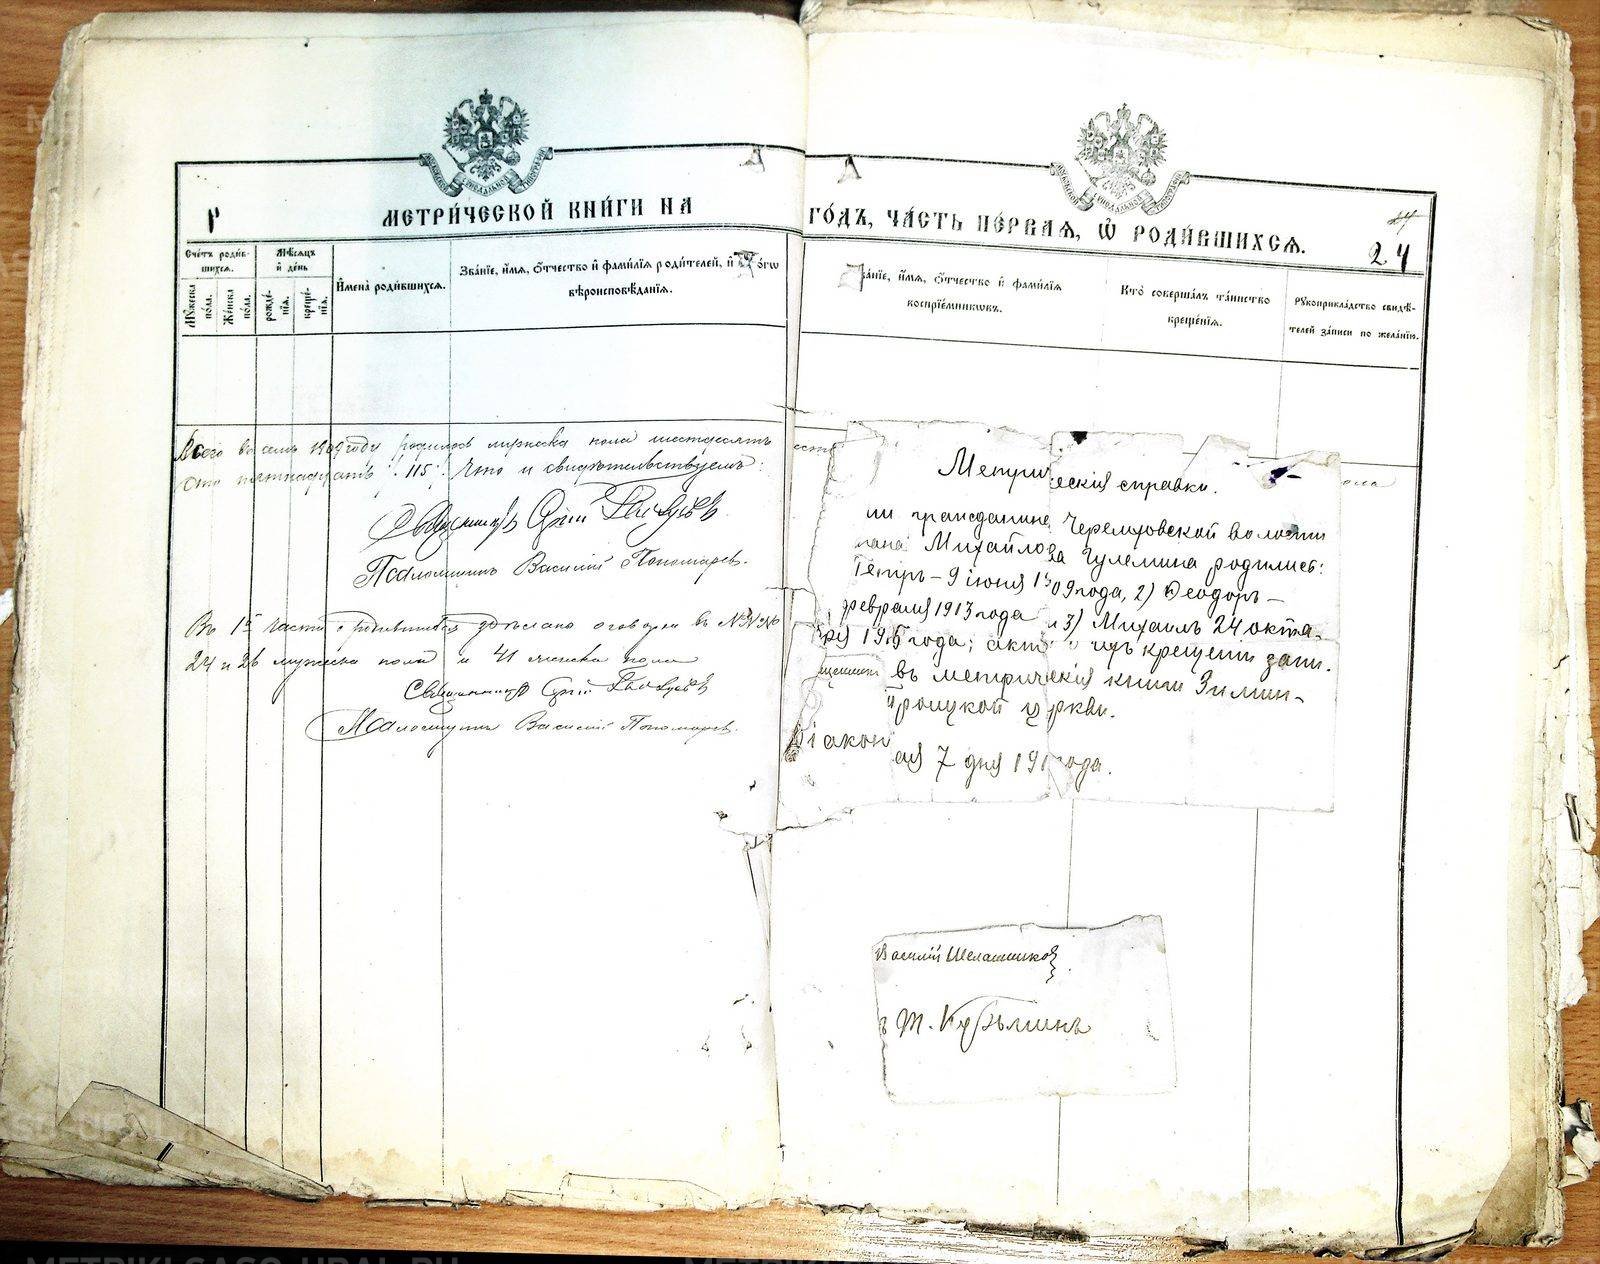 МЕТРИ́ЧЕСКОЙ КНИ́ГИ НА
ГО́ДЪ, ЧА́СТЬ ПЕ́РВАЯ, Ѡ҆ РОДИ́ВШИХСѦ.
24
Сче́тъ роди́в-
шихся.
Мѣ́сяцъ
и де́нь
Мꙋ́жеска
по́ла.
Же́нска
по́ла.
рожде́-
нїя.
креще́-
нїя.
И҆мена̀ роди́вшихся.
Зва́нїе, и҆́мя, ѻ҆́тчество и҆ фами́лїя роди́телей, и҆
вѣроисповѣ́данїя.
и҆́мя, ѻ҆́тчество и҆ фами́лїя
воспрїе́мникѡвъ.
Кто̀ соверша́лъ та́инство
креще́нїя.
Рꙋкоприкла́дство свидѣ́-
телей за́писи по жела́нїю.
Всего въ семъ 1909 году родилось мужеска пола шестьдесятъ
сто пятнадцать 115. Что и свидѣтельствуемъ:
Священникъ
Псаломщикъ Василій Пономаревъ.
Въ 1й части о родившихся сдѣлано оговорки въ №№
24 и 26 мужска пола и 41 женска пола
Священникъ
Псаломщикъ Василій Пономаревъ.
Метрическія справки.
гражданина Черемховской волости
Михайлова Гулемина родились:
Петръ – 9 іюня 1909 года, 2) Ѳеодоръ –
февраля 1913 года и 3) Михаилъ 24 октя-
бря 1915 года; акты о ихъ крещеніи запи-
въ метрическія книги Зимин-
Троицкой церкви.
Діаконъ
мая 7 дня 191 года.
Василій Шелашниковъ